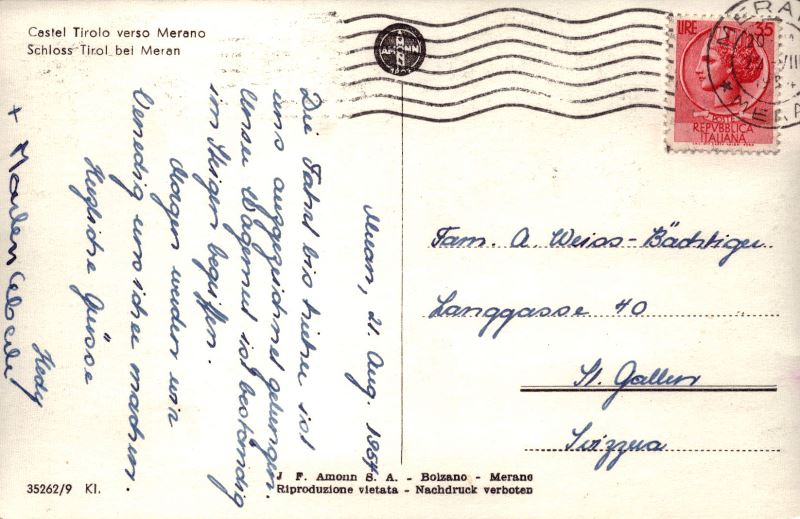 Castel Tirolo verso Merano
Schloss Tirol bei Meran
AMONN
LIRE 35
POSTE
REPVBBLICA
ITALIANA
Meran, 21. Aug. 1954
Die Fahrt bis hieher ist
uns ausgezeichnet gelungen.
Unser Wagemut ist beständig
im Steigen begriffen.
Morgen werden wir
Venedig unsicher machen.
Herzliche Grüsse
Hedy
Fam. A. Weiss-Bächtiger
Langgasse 40
St. Gallen
Svizzera
J. F. Amonn S. A. - Bolzano - Merano
Riproduzione vietata - Nachdruck verboten
35262/9 Kl.